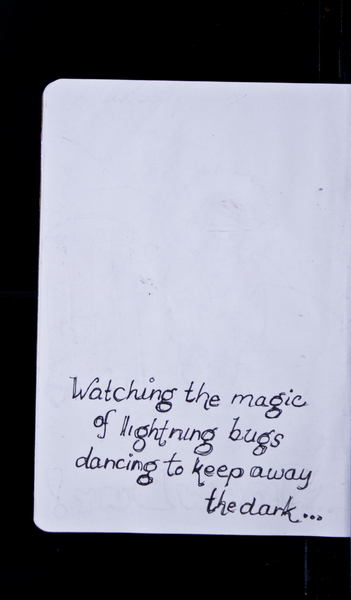 Watching the magic
of lightning bugs
dancing to keep away
the dark...